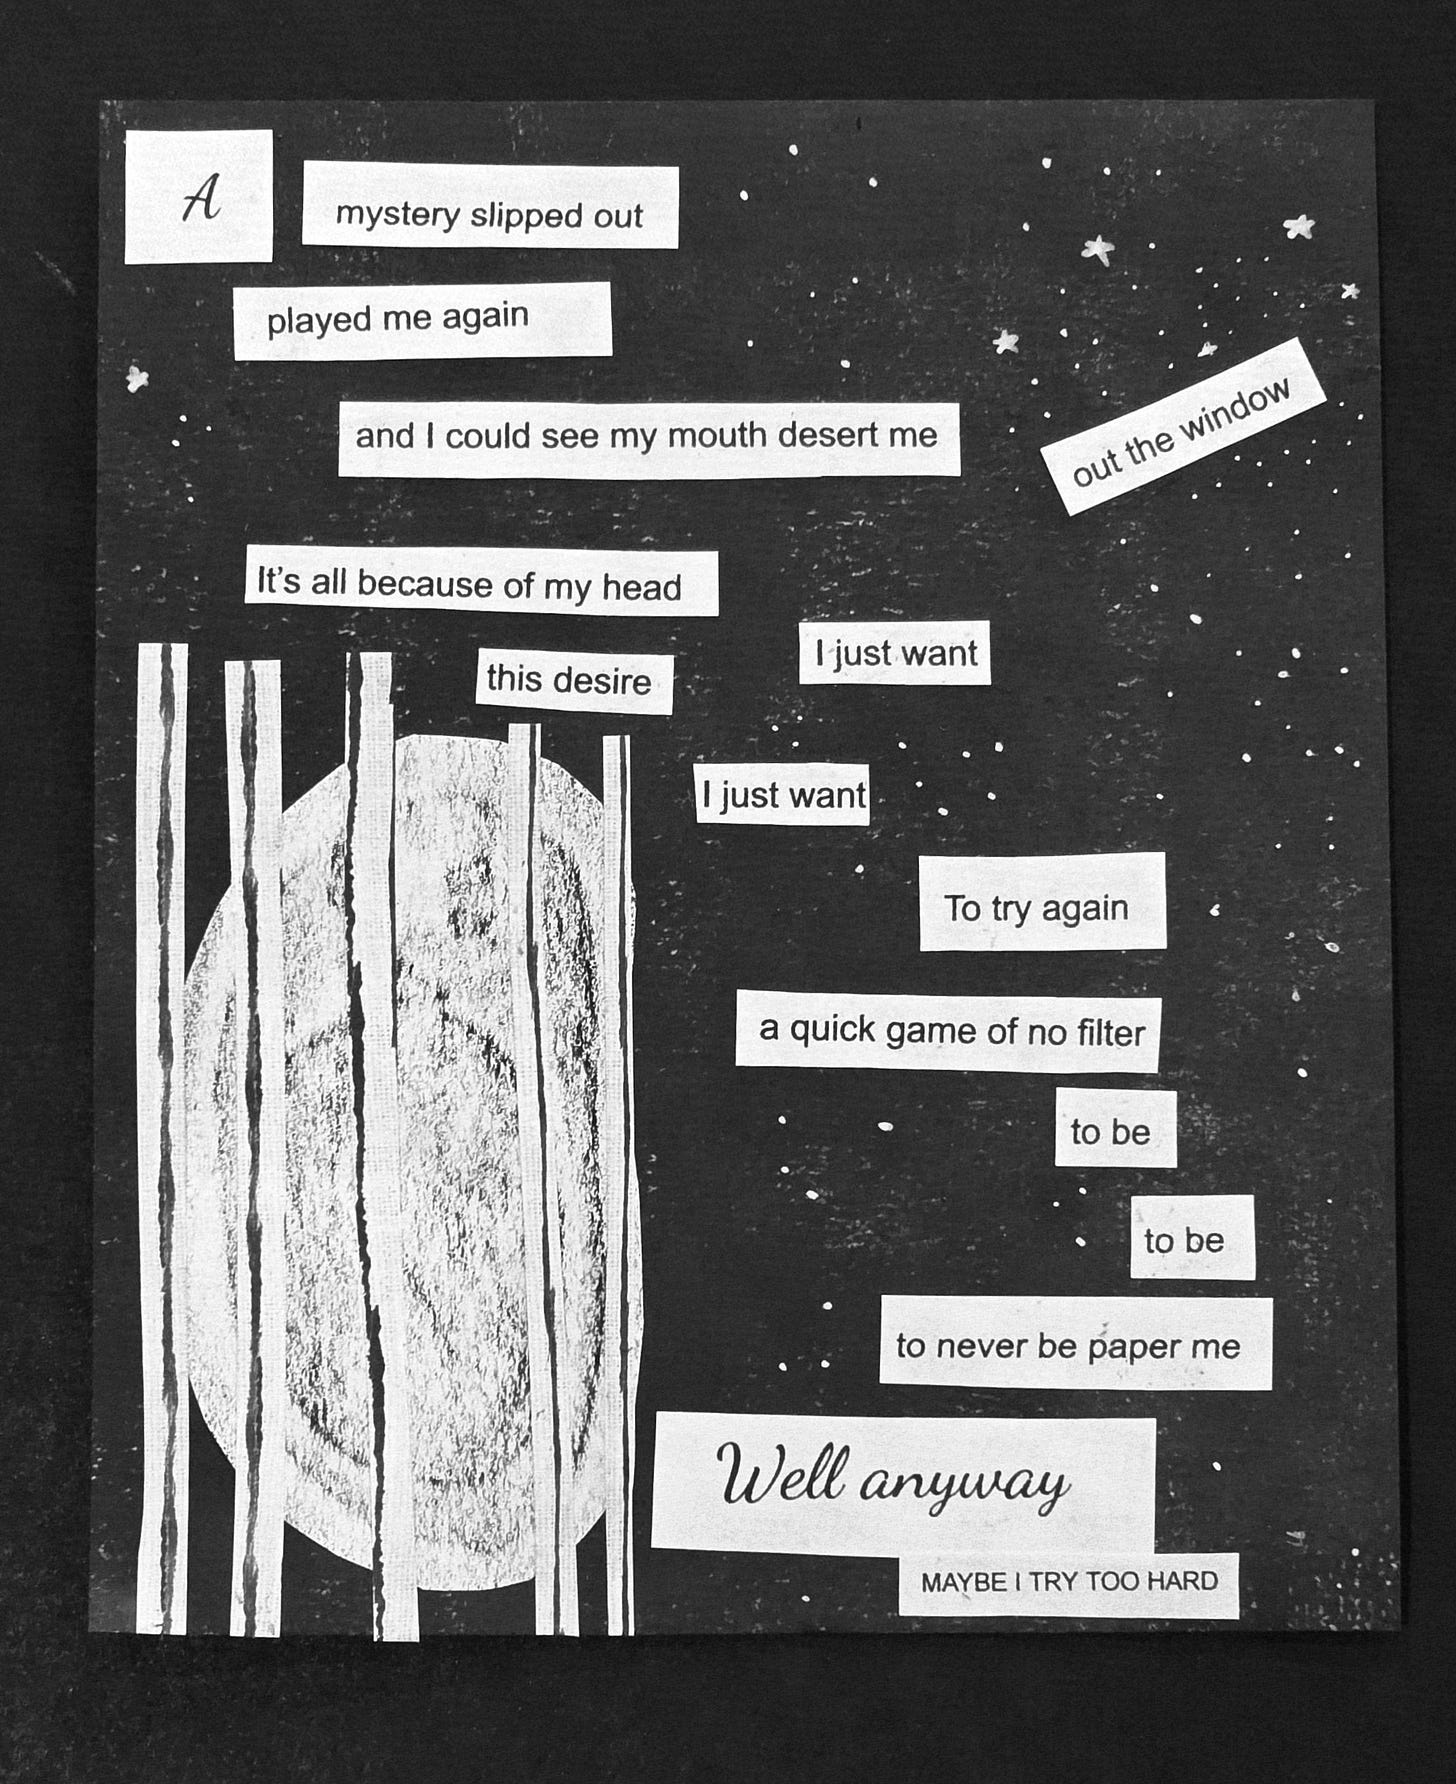 A mystery slipped out
played me again
and I could see my mouth desert me
out the window
It's all because of my head
this desire
I just want
I just want
To try again
a quick game of no filter
to be
to be
to never be paper me
Well anyway
MAYBE I TRY TOO HARD